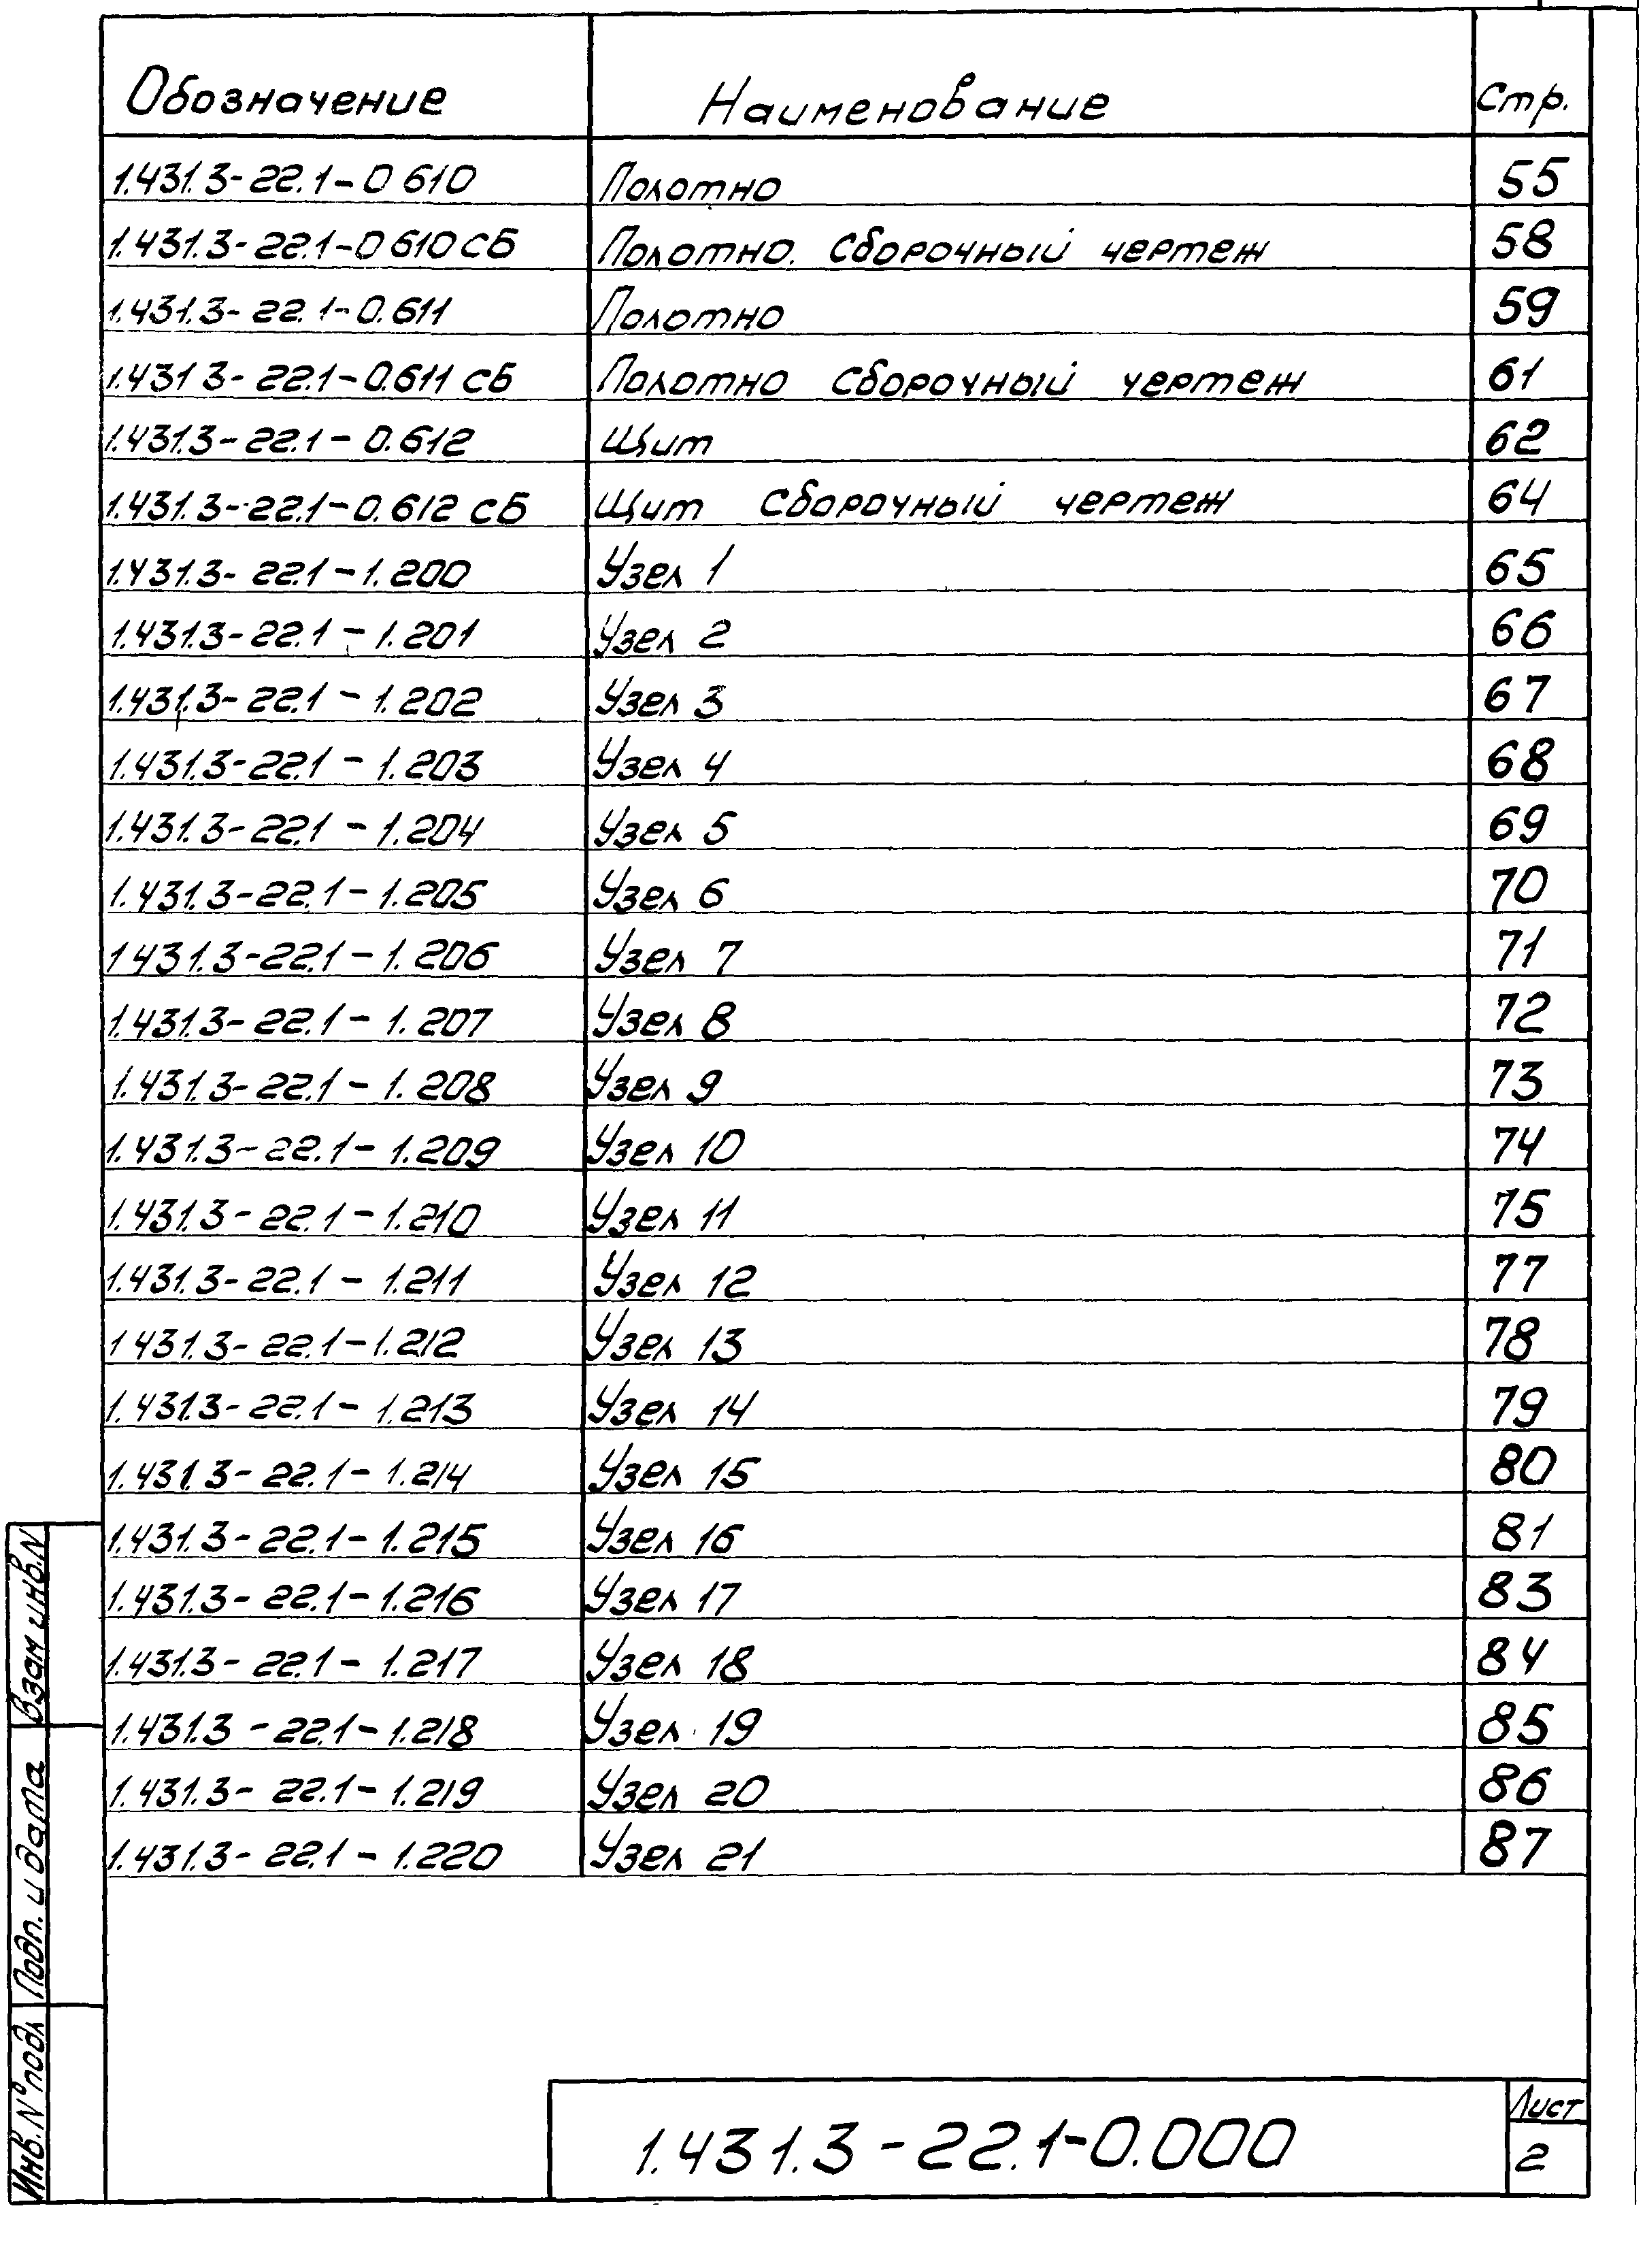 Обозначение Наименование Стр.
1.431.3-22.1-0 610 Полотно 55
1.431.3-22.1-0 610 СБ Полотно. Сборочный чертеж 58
1.431.3-22.1-0.611 Полотно 59
1.431 3-22.1-0.611 СБ Полотно Сборочный чертеж 61
1.431.3-22.1-0.612 Щит 62
1.431.3-22.1-0.612 СБ Щит Сборочный чертеж 64
1.431.3-22.1-1.200 Узел 1 65
1.431.3-22.1-1.201 Узел 2 66
1.431.3-22.1-1.202 Узел 3 67
1.431.3-22.1-1.203 Узел 4 68
1.431.3-22.1-1.204 Узел 5 69
1.431.3-22.1-1.205 Узел 6 70
1 431.3-22.1-1.206 Узел 7 71
1.431.3-22.1-1.207 Узел 8 72
1.431.3-22.1-1.208 Узел 9 73
1.431.3-22.1-1.209 Узел 10 74
1.431.3-22.1-1.210 Узел 11 75
1.431.3-22.1-1.211 Узел 12 77
1 431.3-22.1-1.212 Узел 13 78
1.431.3-22.1-1.213 Узел 14 79
1.431.3-22.1-1.214 Узел 15 80
1.431.3-22.1-1.215 Узел 16 81
1.431.3-22.1-1.216 Узел 17 83
1.431.3-22.1-1.217 Узел 18 84
1.431.3-22.1-1.218 Узел 19 85
1.431.3-22.1-1.219 Узел 20 86
1.431.3-22.1-1.220 Узел 21 87
Взам инв.N
Подп. и дата
Инв.N°подл
1.431.3-22.1-0.000
Лист
2